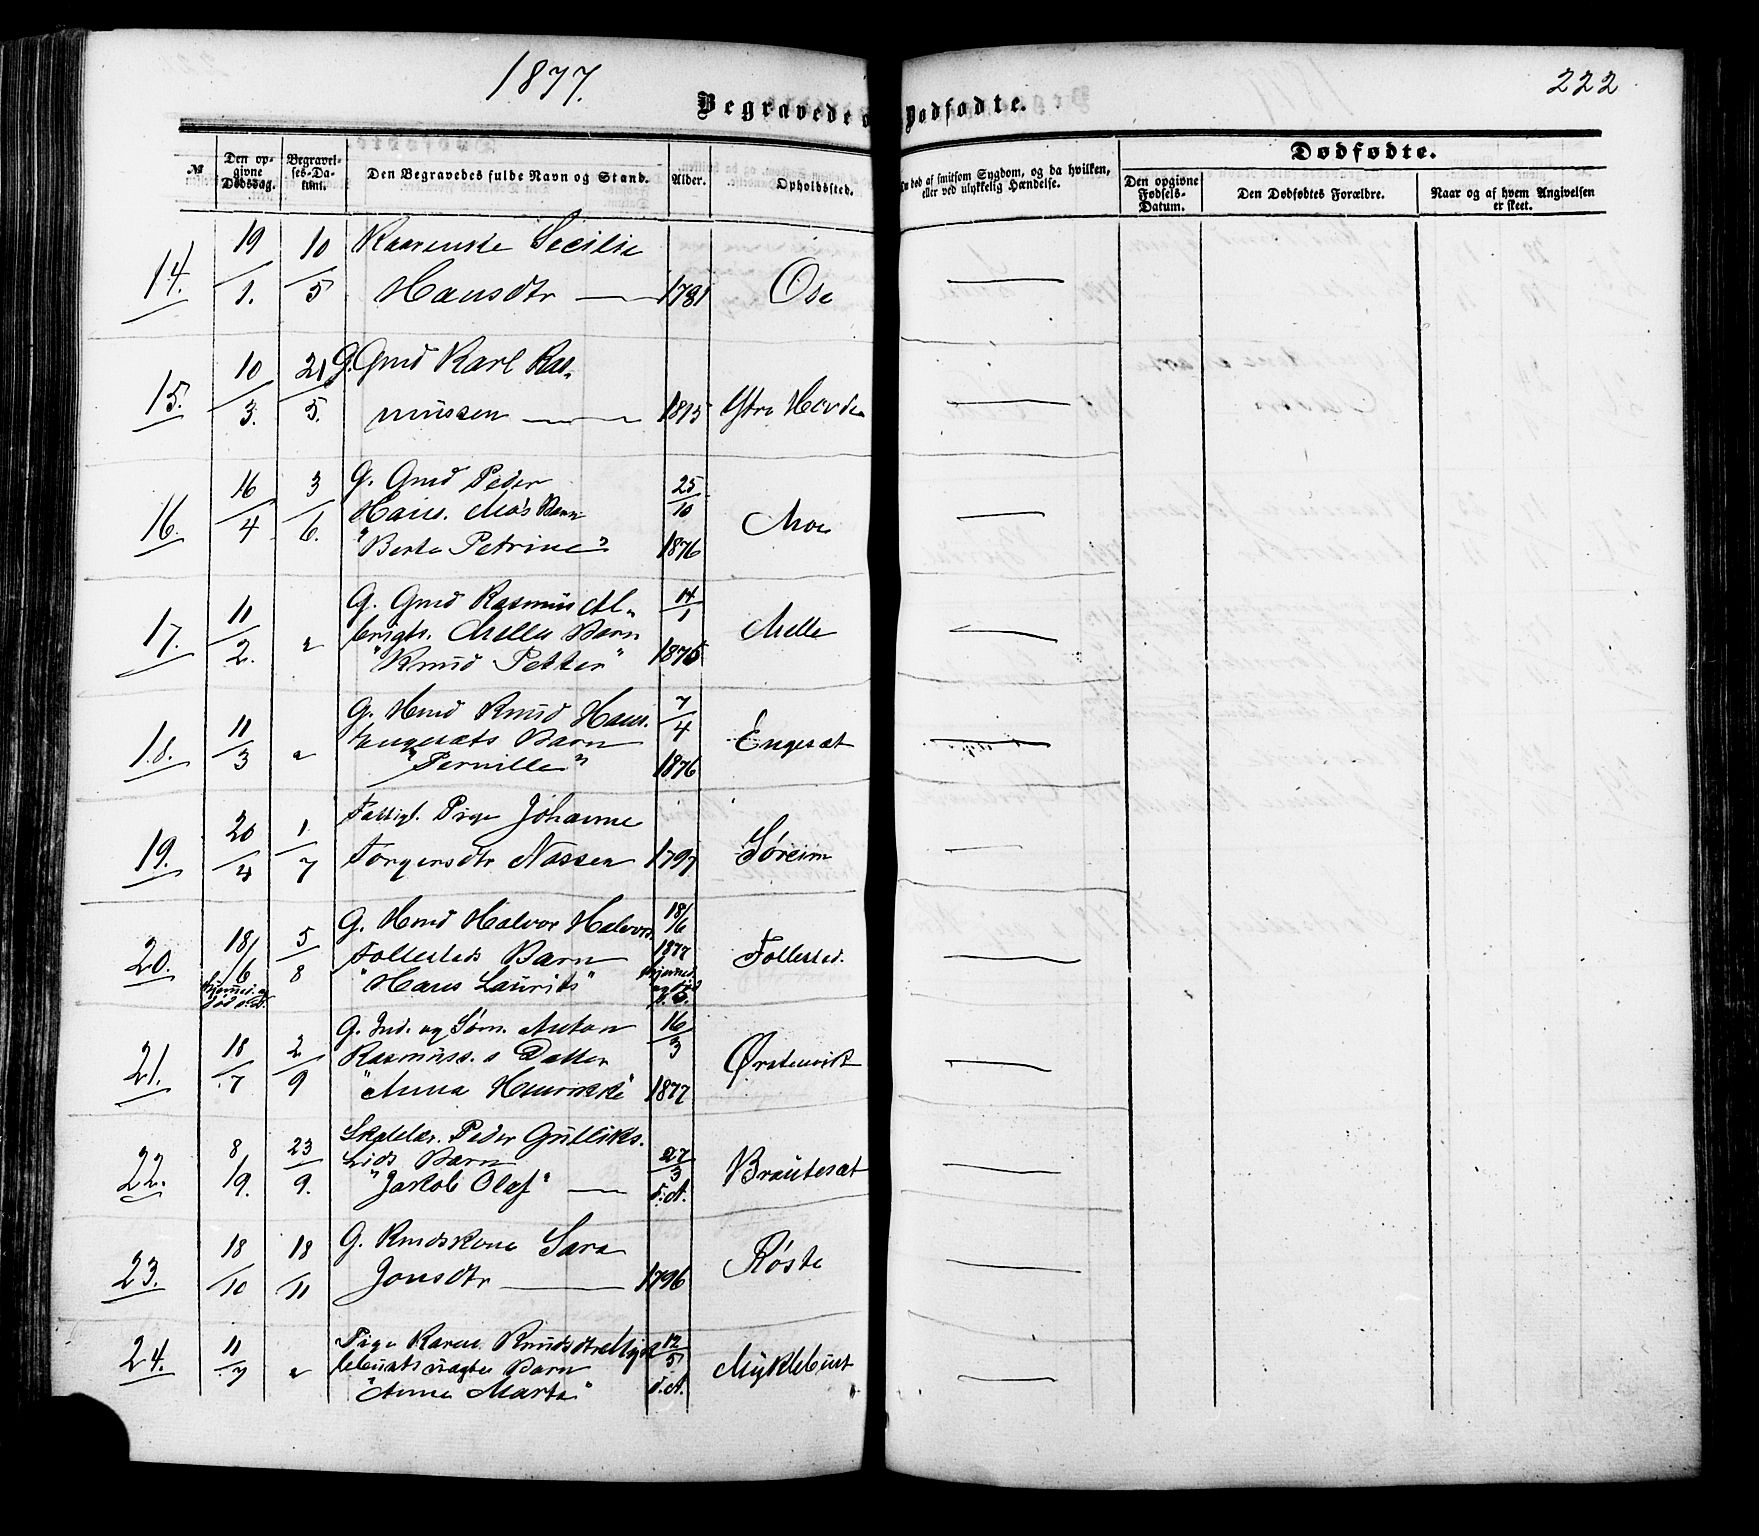 1877.
222
Begravede Dødfødte.
№
Den opgivne Dødsdag.
Begravelses-Datum.
Den Begravedes fulde Navn og Stand.
Alder.
Opholdssted.
ded af smitsom Sygdom, og da hvilken, eller ved ulykkelig Hændelse.
Dødfødte.
Den opgivne Fødsels-Datum.
Den Dødfødtes Forældre.
Naar og af hvem Angivelsen er skeet.
14. 19/1. 10/5 Secilie
Hansdtr — 1781 Ose
15. 10/3. 21/5. G. Gmd Karl Ras-
mussen — 1815 Ytre Hovde
16. 16/4 3/6. G. Gmd Peder 25/10
Hans. Mo's Barn Moe
"Berte Petrine" 1876
17. 11/2. " G. Gmd Rasmus Al- 14/1
brigts. Melles Barn Melle
"Knud Petter" 1875
18. 11/3 " G. Hmd Knud Hans. 7/4
Engesæts Barn Engesæt
"Pernille" 1876
19. 20/4 1/7 Fattigl. Pige Johanne
Torgersdtr Nassen 1797 Søreim
20. 18/6 5/8 G. Hmd Halvor Halvors. 18/6
Follesteds Barn 1877 Follested.
"Hans Laurits"
21. 18/7 2/9 G. Ind. og Søm. Anton 16/3
Rasmuss.s Datter Ørstenvik
"Anna Henrikke" 1877
22. 8/9. 23/9. Skolelær. Peder Gulliks. 27/3
Lids Barn Brautesæt
"Jakob Olaf" — d. A.
23. 18/10 18/11 G. Kmdskone Sara
Jonsdtr — 1796 Røste
24. 11/7 " Pige Karen Knudsdtr 12/5
uægte Barn Myklebust
"Anne Marta" d. A.